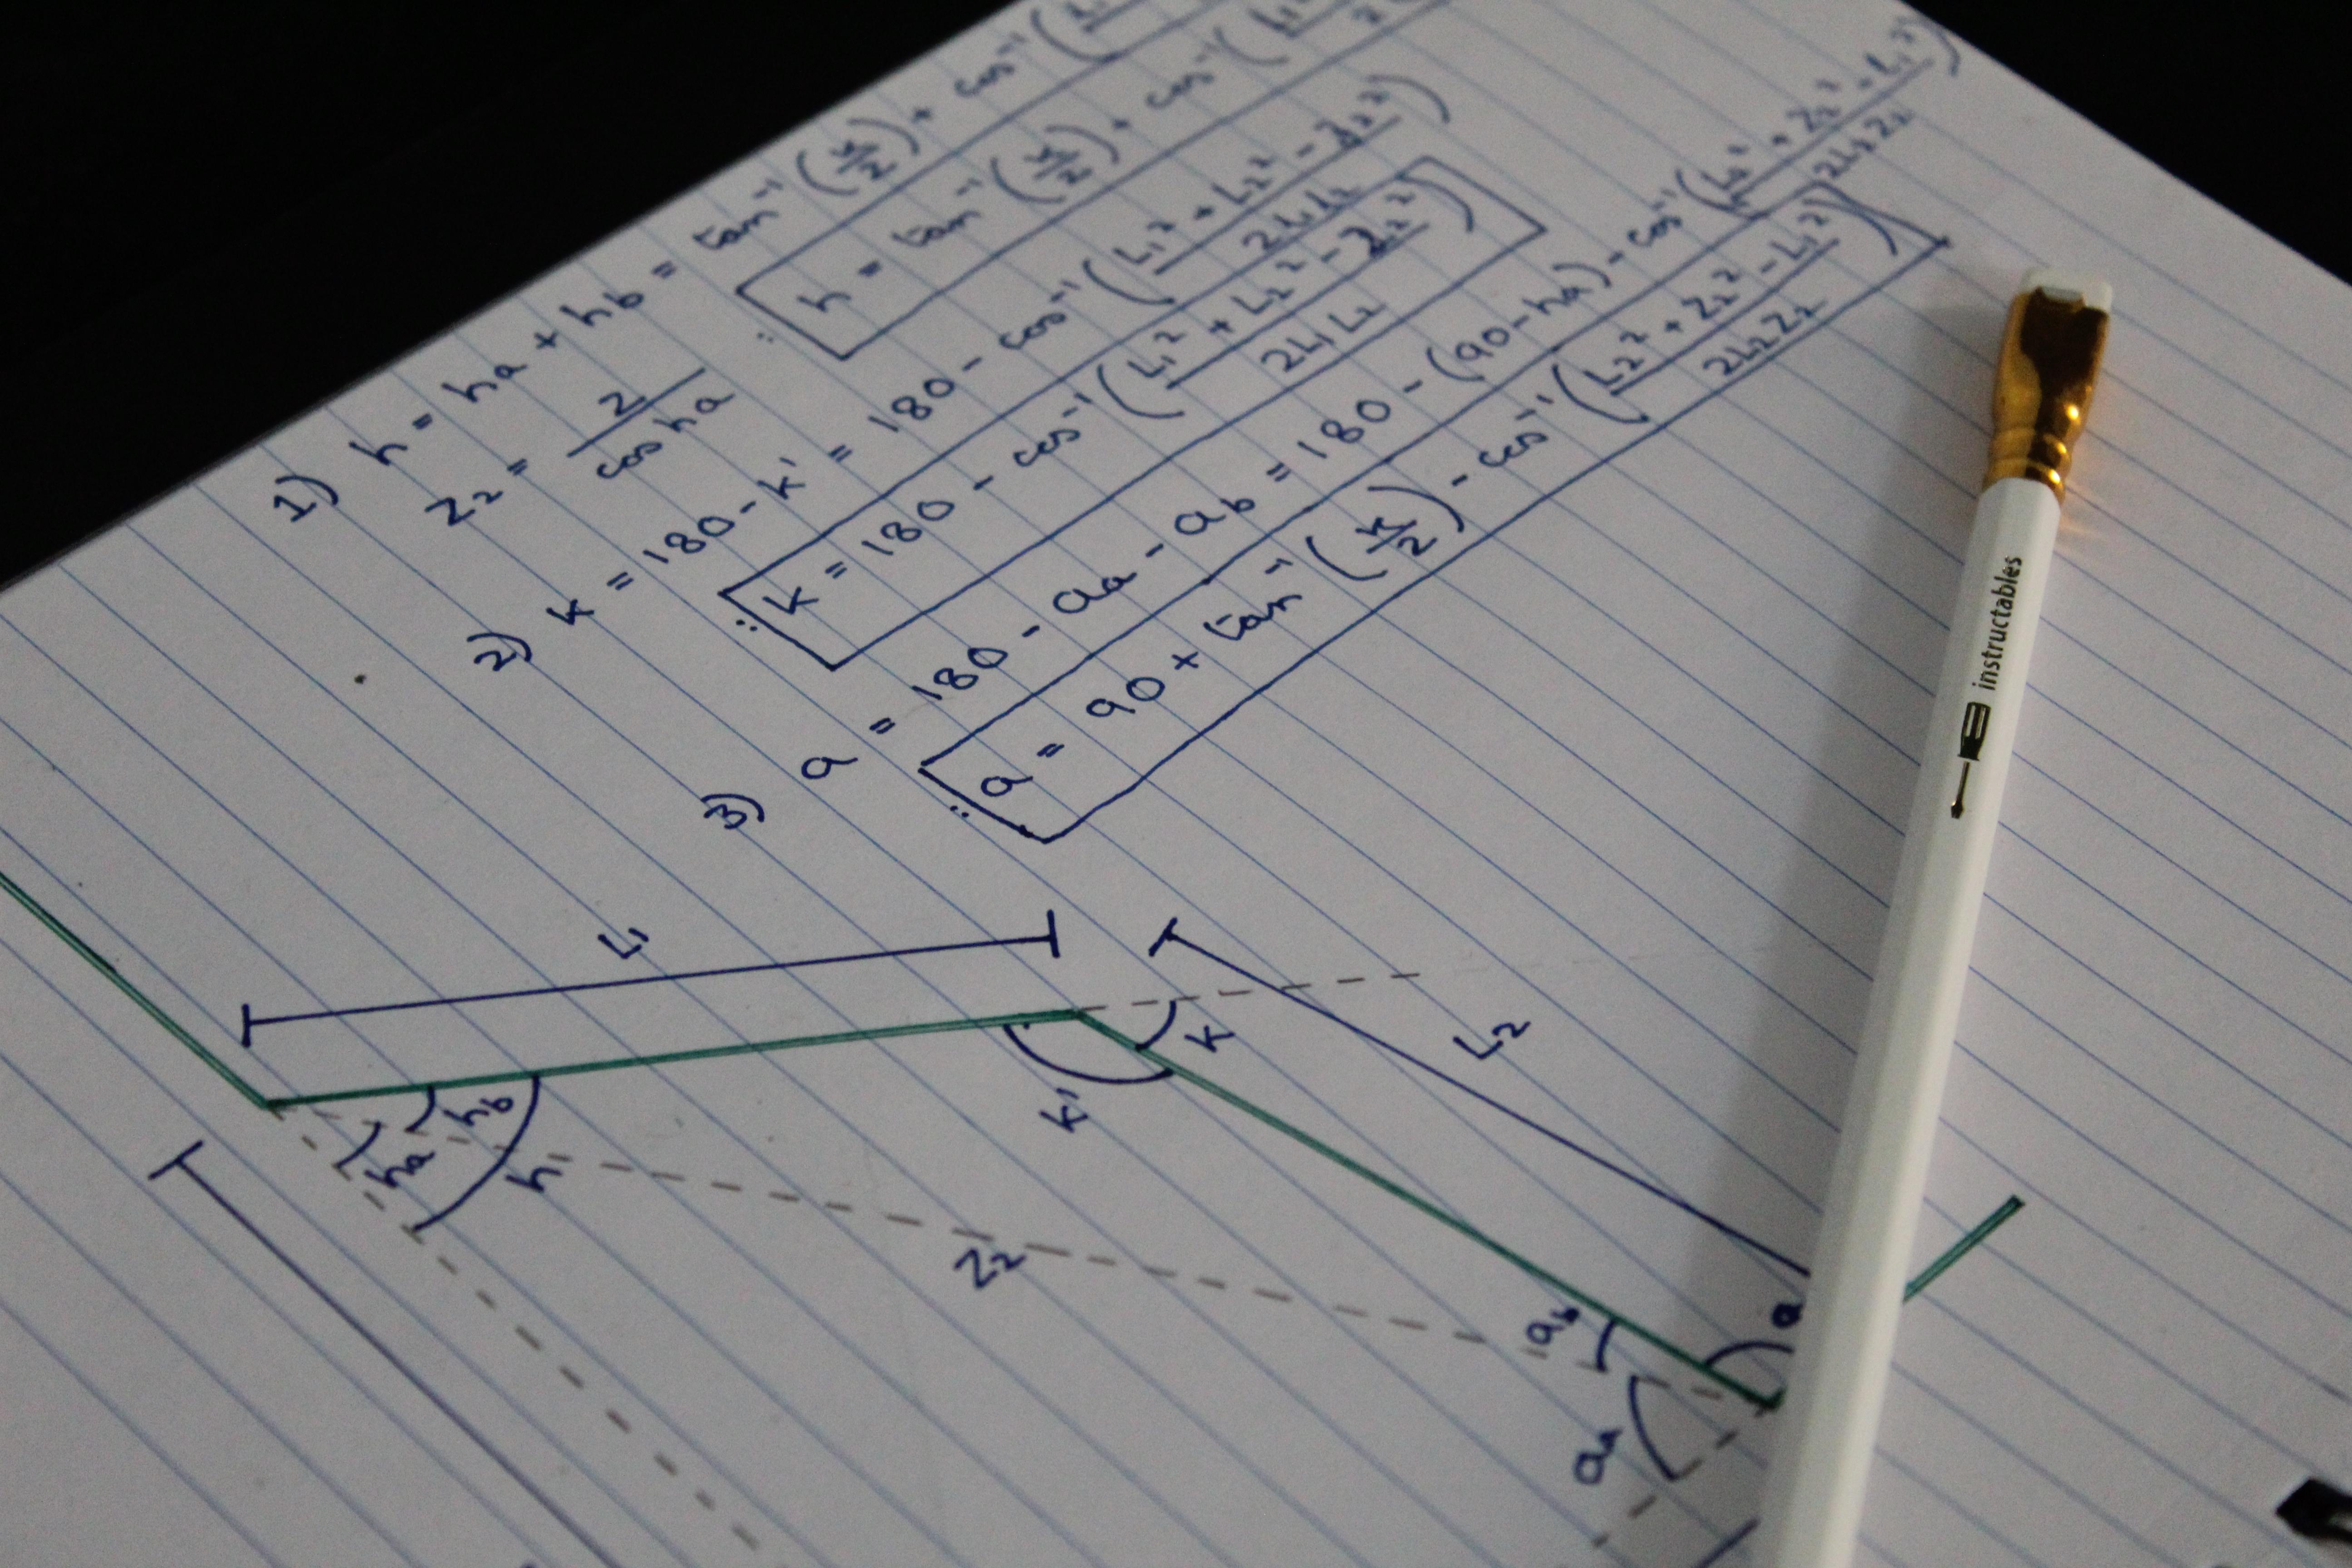 1) h = ha + hb = tan⁻¹(x/z) + cos⁻¹(
Z₂ = z/cos ha
∴ h = tan⁻¹(x/z) + cos⁻¹(
2) k = 180 - k' = 180 - cos⁻¹((L₁² + L₂² - Z₂²)/2L₁L₂)
∴ k = 180 - cos⁻¹((L₁² + L₂² - Z₂²)/2L₁L₂)
3) a = 180 - aa - ab = 180 - (90 - ha) - cos⁻¹((L₂² + Z₂² - L₁²)/2L₂Z₂)
∴ a = 90 + tan⁻¹(x/z) - cos⁻¹((L₂² + Z₂² - L₁²)/2L₂Z₂)
L₁
L₂
k
k'
hb
ha
h
Z₂
ab
a
aa
instructables